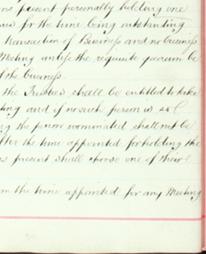 ons present personally holding one
for the time being outstanding
transaction of Business and no business
Meeting unless the requisite quorum be
of the business.
the Trustees shall be entitled to take
ting and if no such person is so
ing the person nominated shall not be
after the time appointed for holding the
present shall choose one of their
om the time appointed for any Meeting